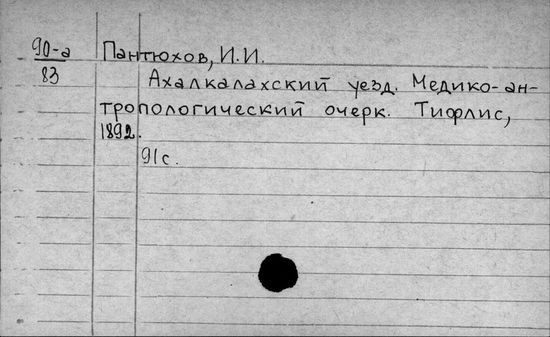 90-а
83
Пантюхов, И.И.
Ахалкалахский уезд. Медико-ан-
тропологический очерк. Тифлис,
1892.
91с.